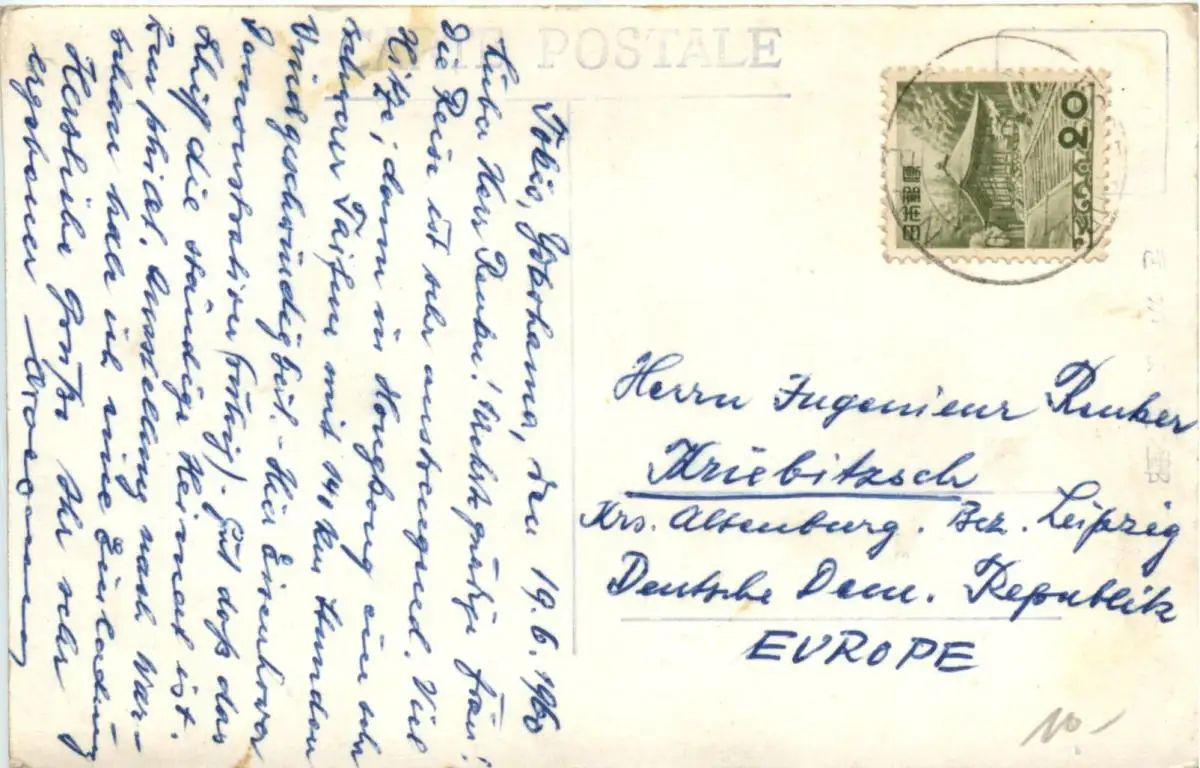 CARTE POSTALE
Tokio, Yokohama, den 19.6.1960
Lieber Herr Renker! Verehrte gnädige Frau!
Die Reise ist sehr anstrengend. Viel
Hitze, dann in Hongkong ein sehr
schwerer Taifun mit 140 km Stunden
Windgeschwindigkeit. - Hier Eisenhower
Demonstration (ruhig). Gut daß das
Schiff die ständige Heimat ist.
Zur Ausstellung nach War-
schau habe ich eine Einladung
Herzliche Grüße Ihr sehr
ergebener
20
日本郵便
Herrn Ingenieur Renker
Kriebitzsch
Krs. Altenburg. Bez. Leipzig
Deutsche Dem. Republik
EUROPE
10.-